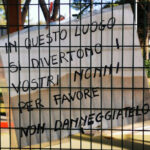 IN QUESTO LUOGO
SI DIVERTONO I
VOSTRI NONNI
PER FAVORE
NON DANNEGGIATELO